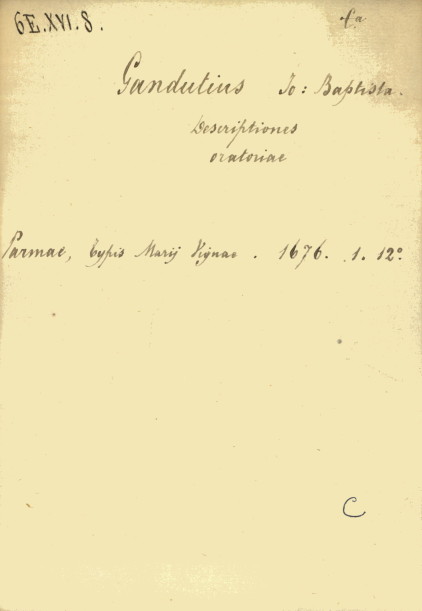 6E.XVI.8.
fa
Gandutius Jo: Baptista.
Descriptiones
oratoriae
Parmae, typis Marij Vignae. 1676. 1. 12º
C